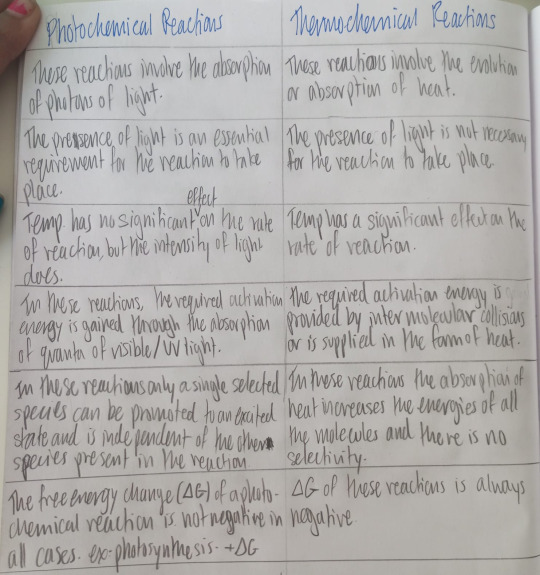 Photochemical Reactions
These reactions involve the absorption
of photons of light.
The presence of light is an essential
requirement for the reaction to take
place.
effect
Temp. has no significant on the rate
of reaction, but the intensity of light
does.
In these reactions, the required activation
energy is gained through the absorption
of quanta of visible/UV light.
In these reactions only a single selected
species can be promoted to an excited
state and is independent of the other
species present in the reaction
The free energy change (ΔG) of a photo-
chemical reaction is not negative in
all cases. ex-photosynthesis. +ΔG
Thermochemical Reactions
These reactions involve the evolution
or absorption of heat.
The presence of light is not necessary
for the reaction to take place.
Temp has a significant effect on the
rate of reaction.
The required activation energy is
provided by inter molecular collisions
or is supplied in the form of heat.
In these reactions the absorption of
heat increases the energies of all
the molecules and there is no
selectivity.
ΔG of these reactions is always
negative